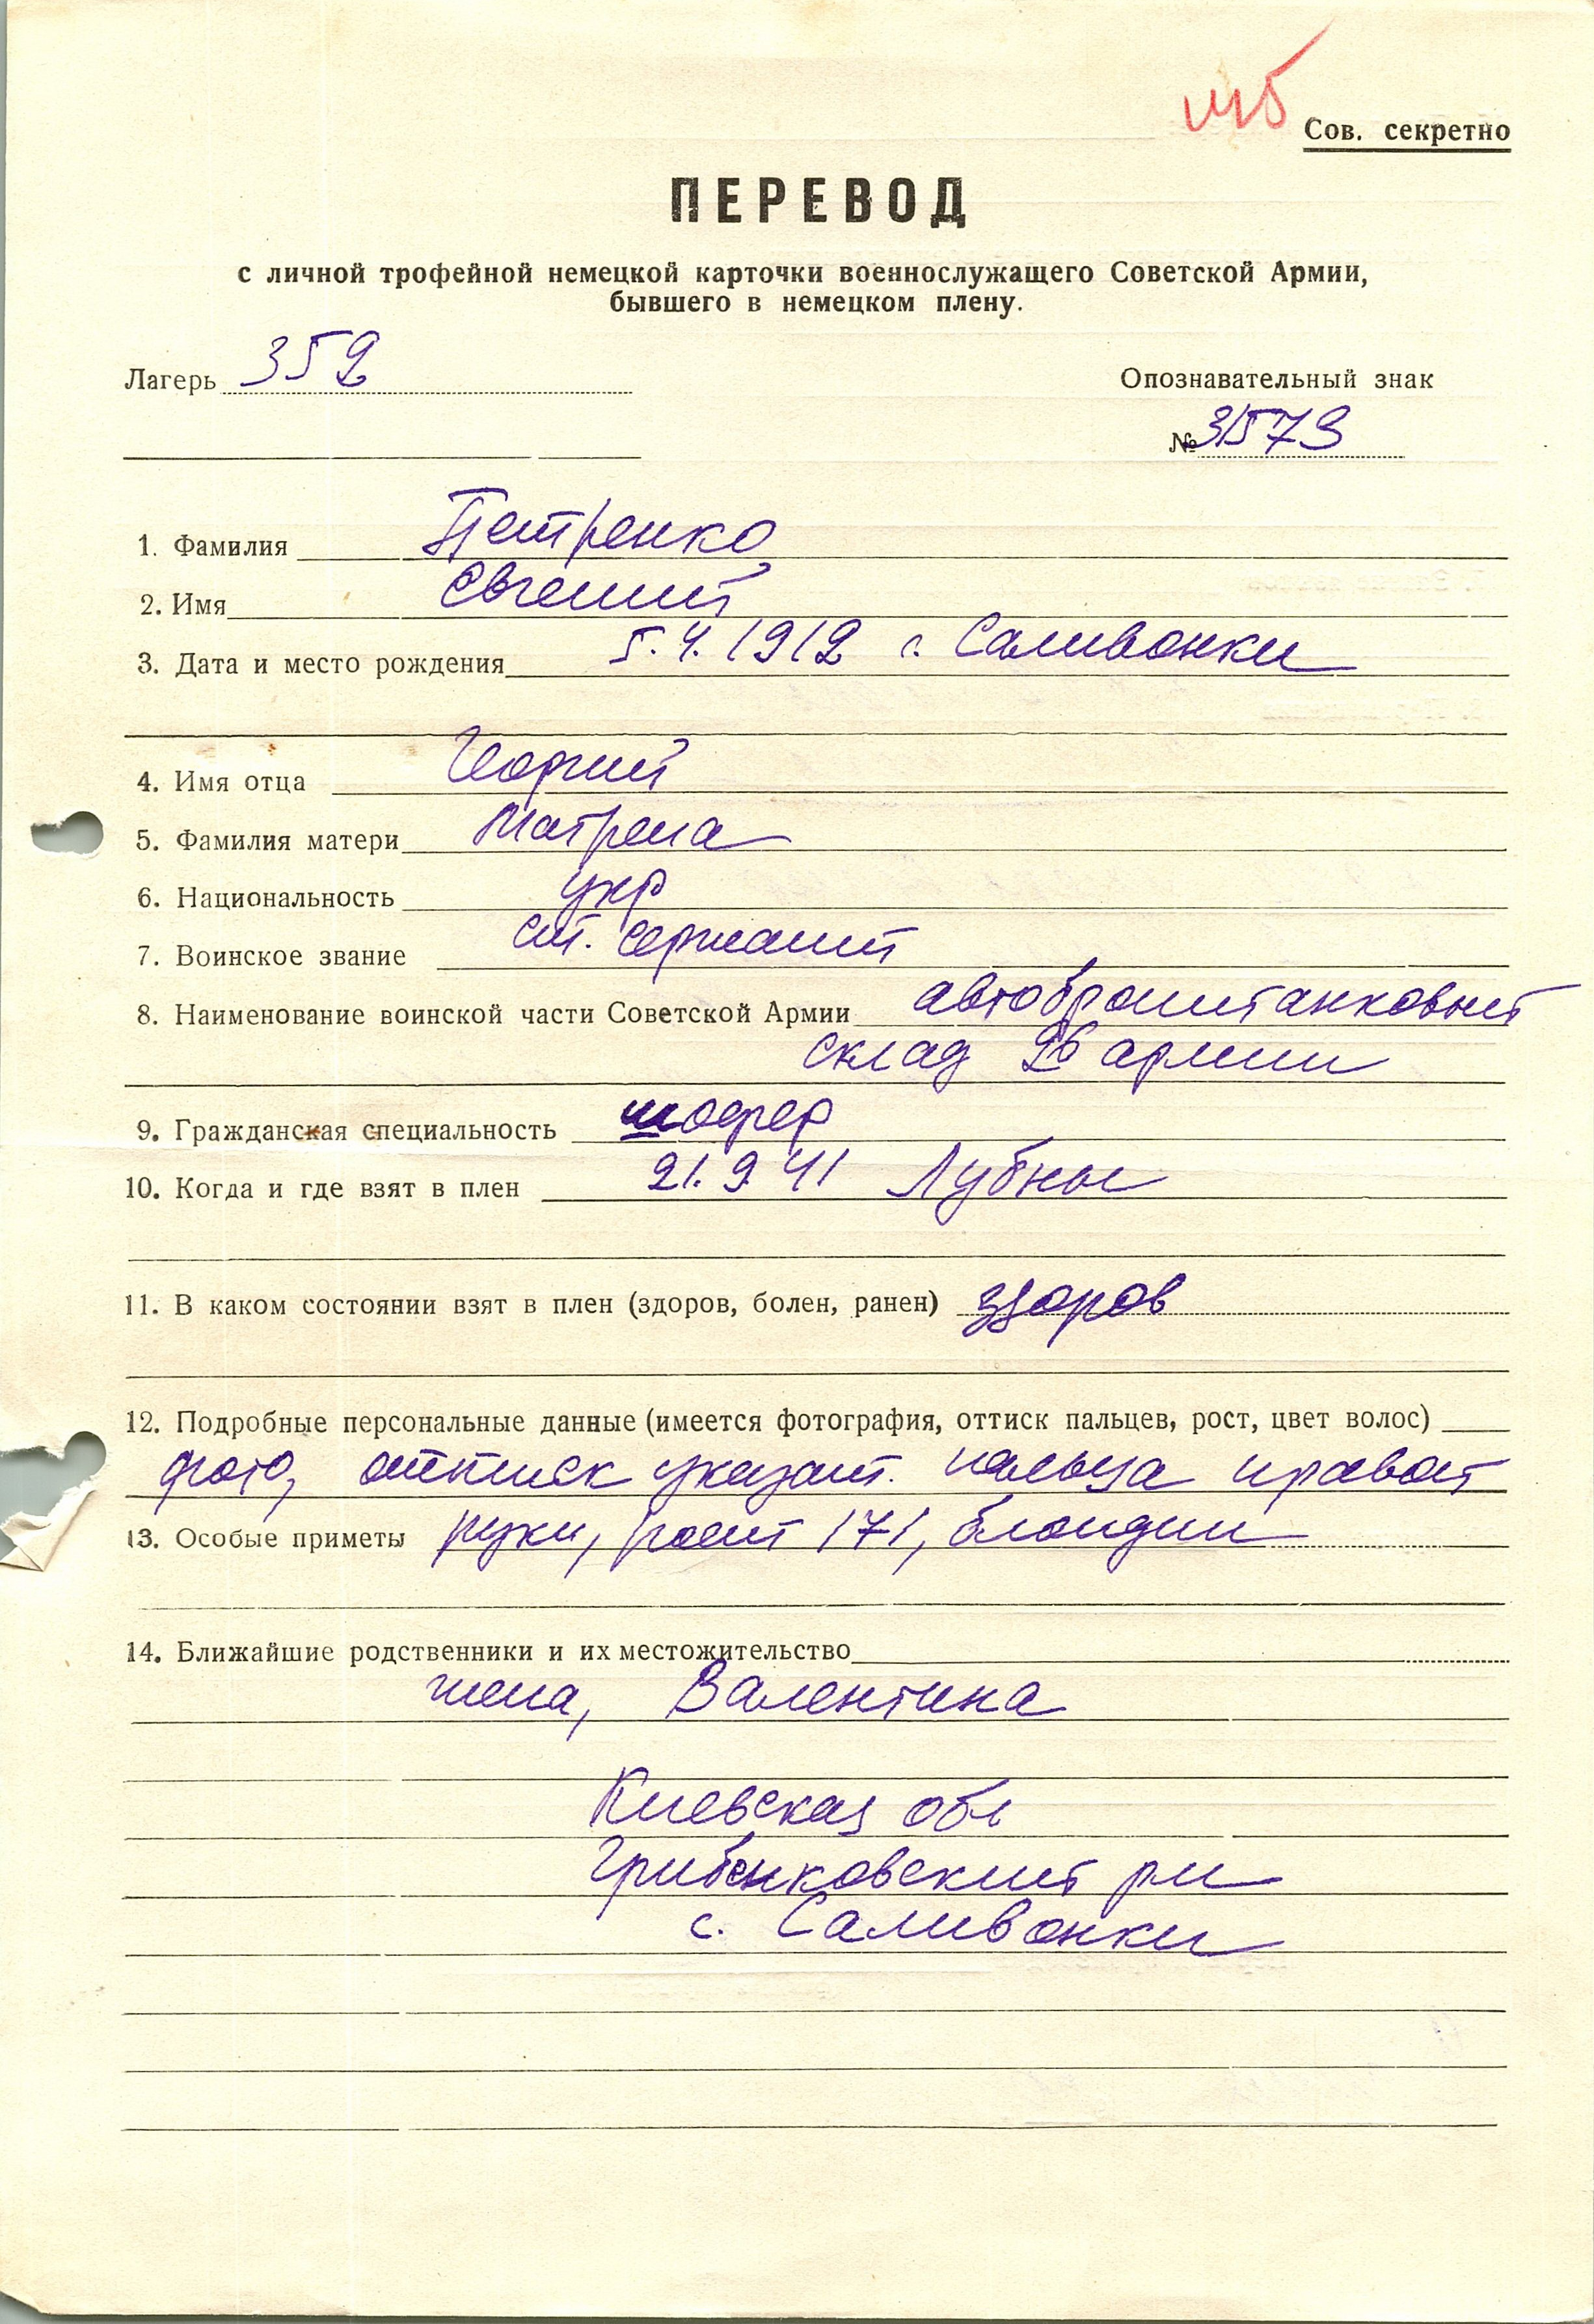 шб
Сов. секретно
ПЕРЕВОД
с личной трофейной немецкой карточки военнослужащего Советской Армии,
бывшего в немецком плену.
Лагерь 352
Опознавательный знак
№ 31573
1. Фамилия Петренко
2. Имя Евгений
3. Дата и место рождения 5.4.1912 г. Саливонки
4. Имя отца Георгий
5. Фамилия матери Матрена
6. Национальность укр
7. Воинское звание ст. сержант
8. Наименование воинской части Советской Армии автобронетанковый
склад 26 армии
9. Гражданская специальность шофер
10. Когда и где взят в плен 21.9.41 Лубны
11. В каком состоянии взят в плен (здоров, болен, ранен) здоров
12. Подробные персональные данные (имеется фотография, оттиск пальцев, рост, цвет волос)
фото, оттиск указат. пальца правой
13. Особые приметы руки, рост 171, блондин
14. Ближайшие родственники и их местожительство
жена, Валентина
Киевская обл
Гребенковский рн
с. Саливонки